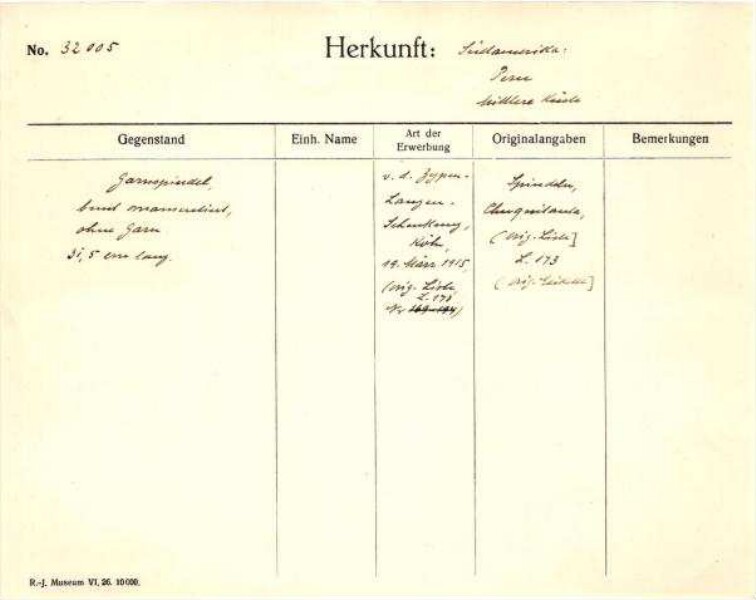 No. 32005
Herkunft: Südamerika.
Peru
Mittlere Küste
Gegenstand
Einh. Name
Art der Erwerbung
Originalangaben
Bemerkungen
Garnspindel,
bunt ornamentiert,
ohne Garn
31,5 cm lang.
v. d. Zypen-
Langen-
Schenkung,
Köln,
19. März 1915,
(orig. Liste
L. 173
Nr. 169-194)
Spindeln,
(Orig.-Liste]
L. 173
(Orig.-
R.-J. Museum VI, 26. 10000.